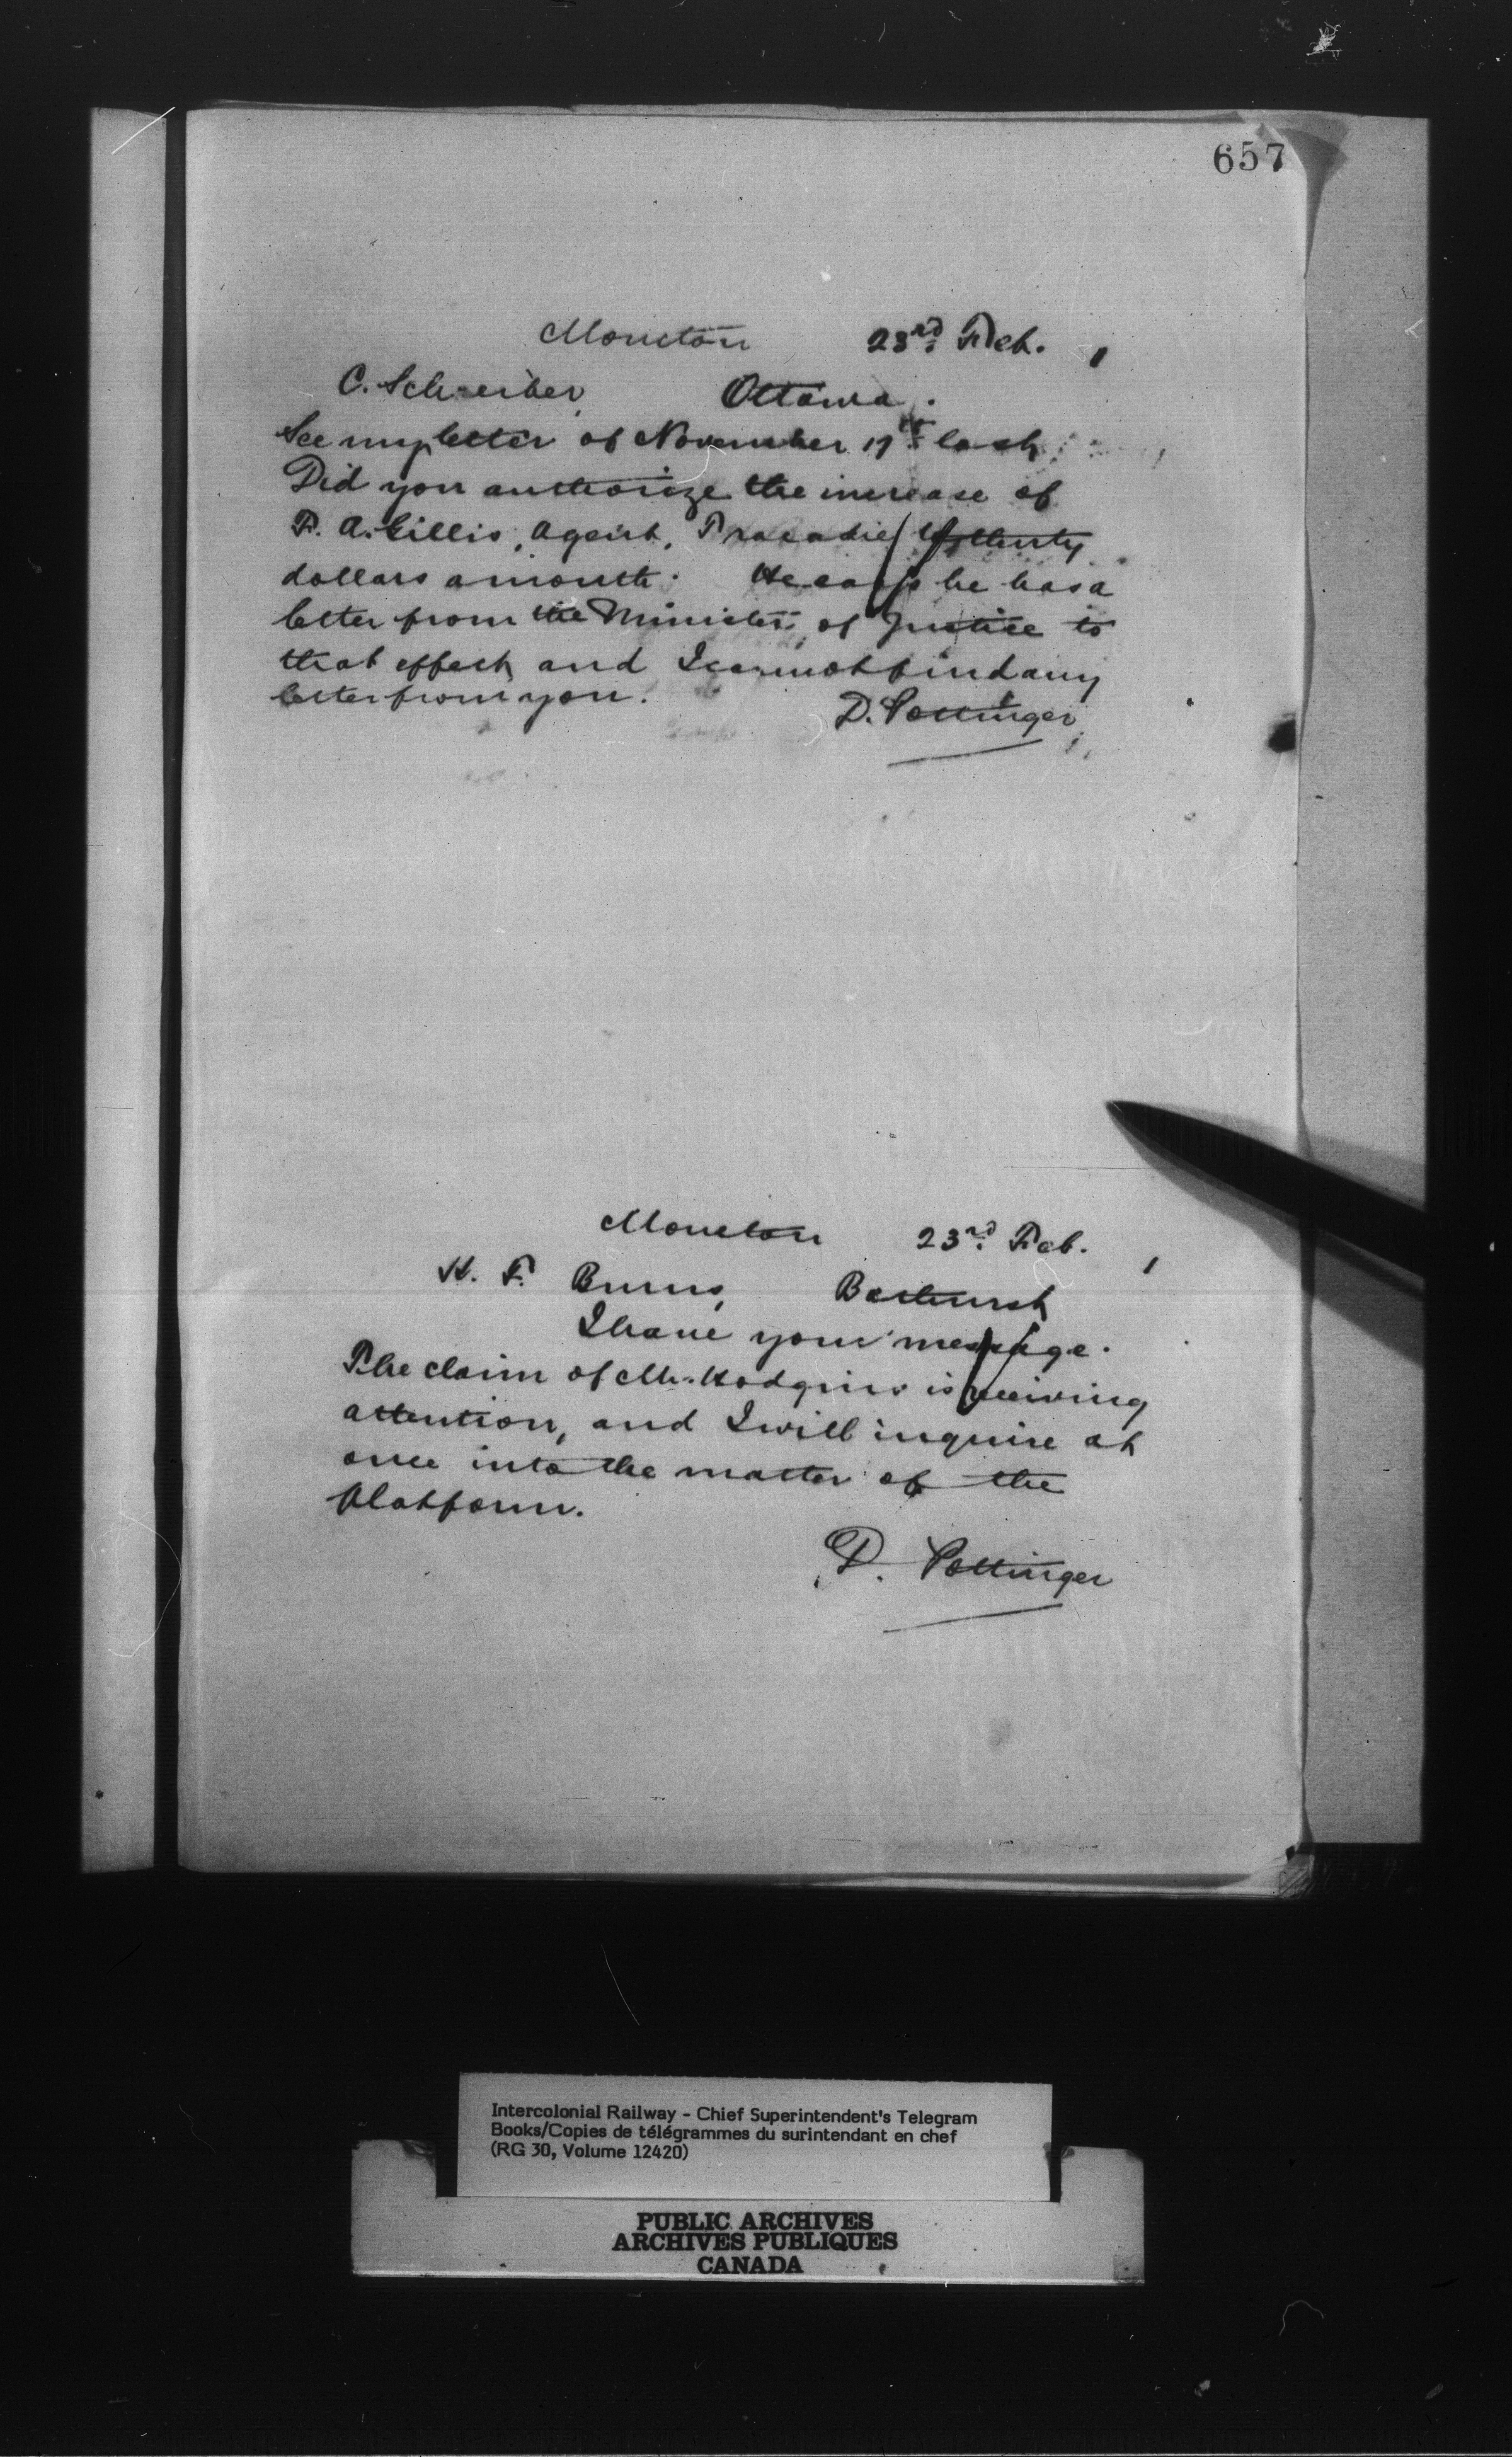 657
Moncton 23rd Feb.
C. Schreiber, Ottawa.
See my letter of November 17th last
Did you authorize the increase of
F. A. Gillis, Agent, Tracadie, thirty
dollars a month. He says he has a
letter from the Minister of Justice to
that effect, and I cannot find any
letter from you.
D. Pottinger
Moncton 23rd Feb.
K. F. Burns, Bathurst
I have your message.
The claim of Mr. Hodgins is receiving
attention, and I will inquire at
once into the matter of the
Platform.
D. Pottinger
Intercolonial Railway - Chief Superintendent's Telegram
Books/Copies de télégrammes du surintendant en chef
(RG 30, Volume 12420)
PUBLIC ARCHIVES
ARCHIVES PUBLIQUES
CANADA